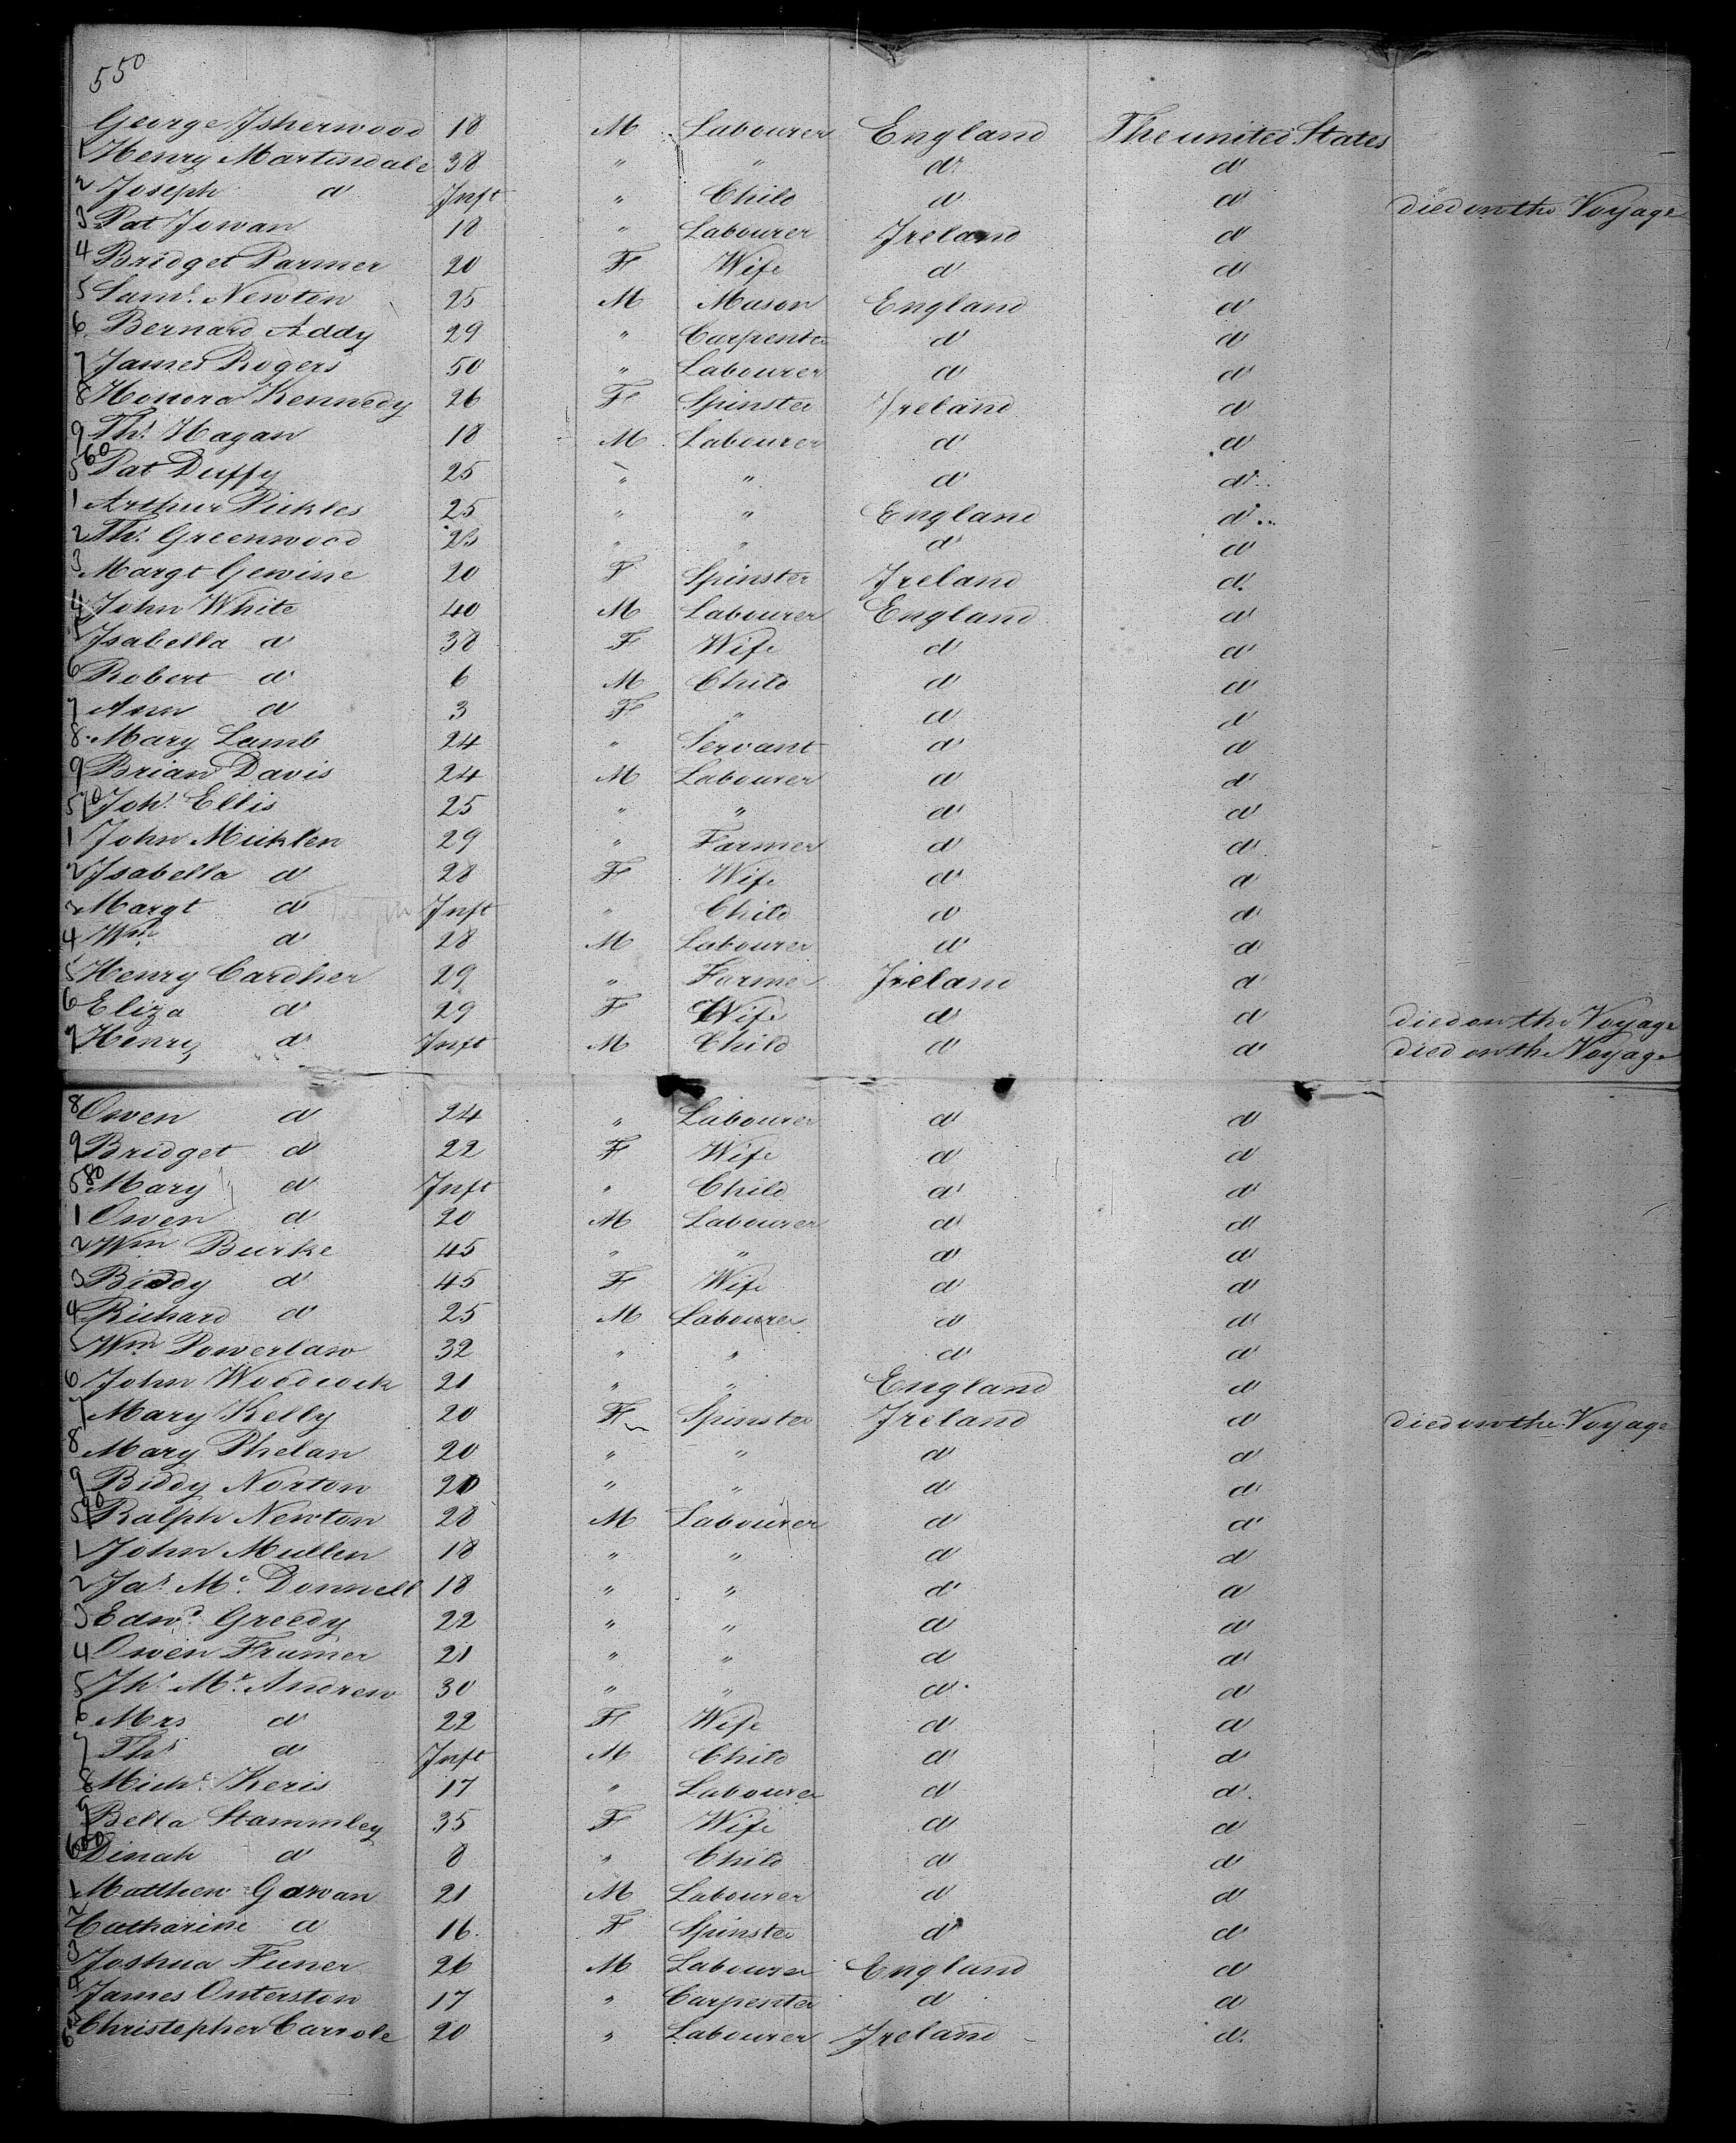 550
George Isherwood 18 M Labourer England The united States
1 Henry Martindale 38 " " d d
2 Joseph d Inft " Child d d died on the Voyage
3 Pat Jowan 18 " Labourer Ireland d
4 Bridget Parmer 20 F Wife d d
5 Saml. Newton 25 M Mason England d
6 Bernard Addy 29 " Carpenter d d
7 James Rogers 50 " Labourer d d
8 Honora Kennedy 26 F Spinster Ireland d
9 Ths. Hagan 18 M Labourer d d
560 Pat Duffy 25 " " d d
1 Arthur Pickles 25 " " England d
2 Ths. Greenwood 23 " " d d
3 Margt Gewine 20 F Spinster Ireland d
4 John White 40 M Labourer England d
5 Isabella d 38 F Wife d d
6 Robert d 6 M Child d d
7 Ann d 3 F " d d
8 Mary Lamb 24 " Servant d d
9 Brian Davis 24 M Labourer d d
570 Joh. Ellis 25 " " d d
1 John Micklen 29 " Farmer d d
2 Isabella d 28 F Wife d d
3 Margt d Inft " Child d d
4 Wm d 28 M Labourer d d
5 Henry Cardher 29 " Farmer Ireland d
6 Eliza d 29 F Wife d d died on the Voyage
7 Henry d Inft M Child d d died on the Voyage
8 Owen d 24 " Labourer d d
9 Bridget d 22 F Wife d d
580 Mary d Inft " Child d d
1 Owen d 20 M Labourer d d
2 Wm Burke 45 " " d d
3 Biddy d 45 F Wife d d
4 Richard d 25 M Labourer d d
5 Wm Powerlaw 32 " " d d
6 John Woodcock 21 " " England d
7 Mary Kelly 20 F Spinster Ireland d died on the Voyage
8 Mary Phelan 20 " " d d
9 Biddy Norton 20 " " d d
590 Ralph Newton 28 M Labourer d d
1 John Mullen 18 " " d d
2 Jas. Mc. Donnell 18 " " d d
3 Edwd. Greedy 22 " " d d
4 Owen Frumer 21 " " d d
5 Jhs. Mc. Andrew 30 " " d d
6 Mrs d 22 F Wife d d
7 Ths d Inft M Child d d
8 Michl. Keris 17 " Labourer d d
9 Bella Stammley 35 F Wife d d
600 Dinah d 8 " Child d d
1 Matthew Garvan 21 M Labourer d d
2 Catharine d 16 F Spinster d d
3 Joshua Funer 26 M Labourer England d
4 James Onterston 17 " Carpenter d d
605 Christopher Carrole 20 " Labourer Ireland d